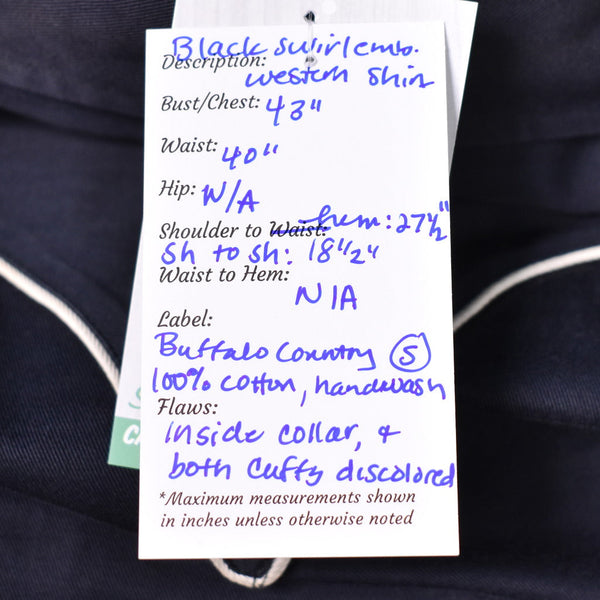 Black swirl emb.
Description:
western shirt
Bust/Chest: 43"
Waist: 40"
Hip: N/A
Shoulder to Waist: hem: 27½"
Sh to sh: 18 1/2"
Waist to Hem:
N/A
Label:
Buffalo Country S
100% cotton, handwash
Flaws:
inside collar, &
both cuffs discolored
*Maximum measurements shown
in inches unless otherwise noted